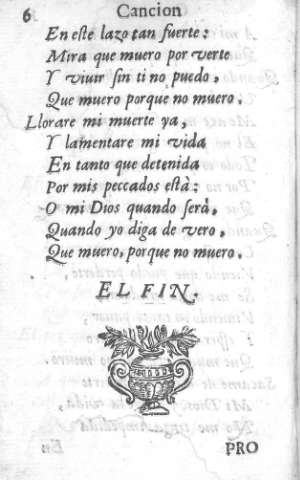 6 Cancion
En eſte lazo tan fuerte:
Mira que muero por verte
Y viuir ſin ti no puedo,
Que muero porque no muero.
Llorare mi muerte ya,
Y lamentare mi vida
En tanto que detenida
Por mis peccados eſtà:
O mi Dios quando ſerà,
Quando yo diga de vero,
Que muero, porque no muero.
EL FIN.
PRO